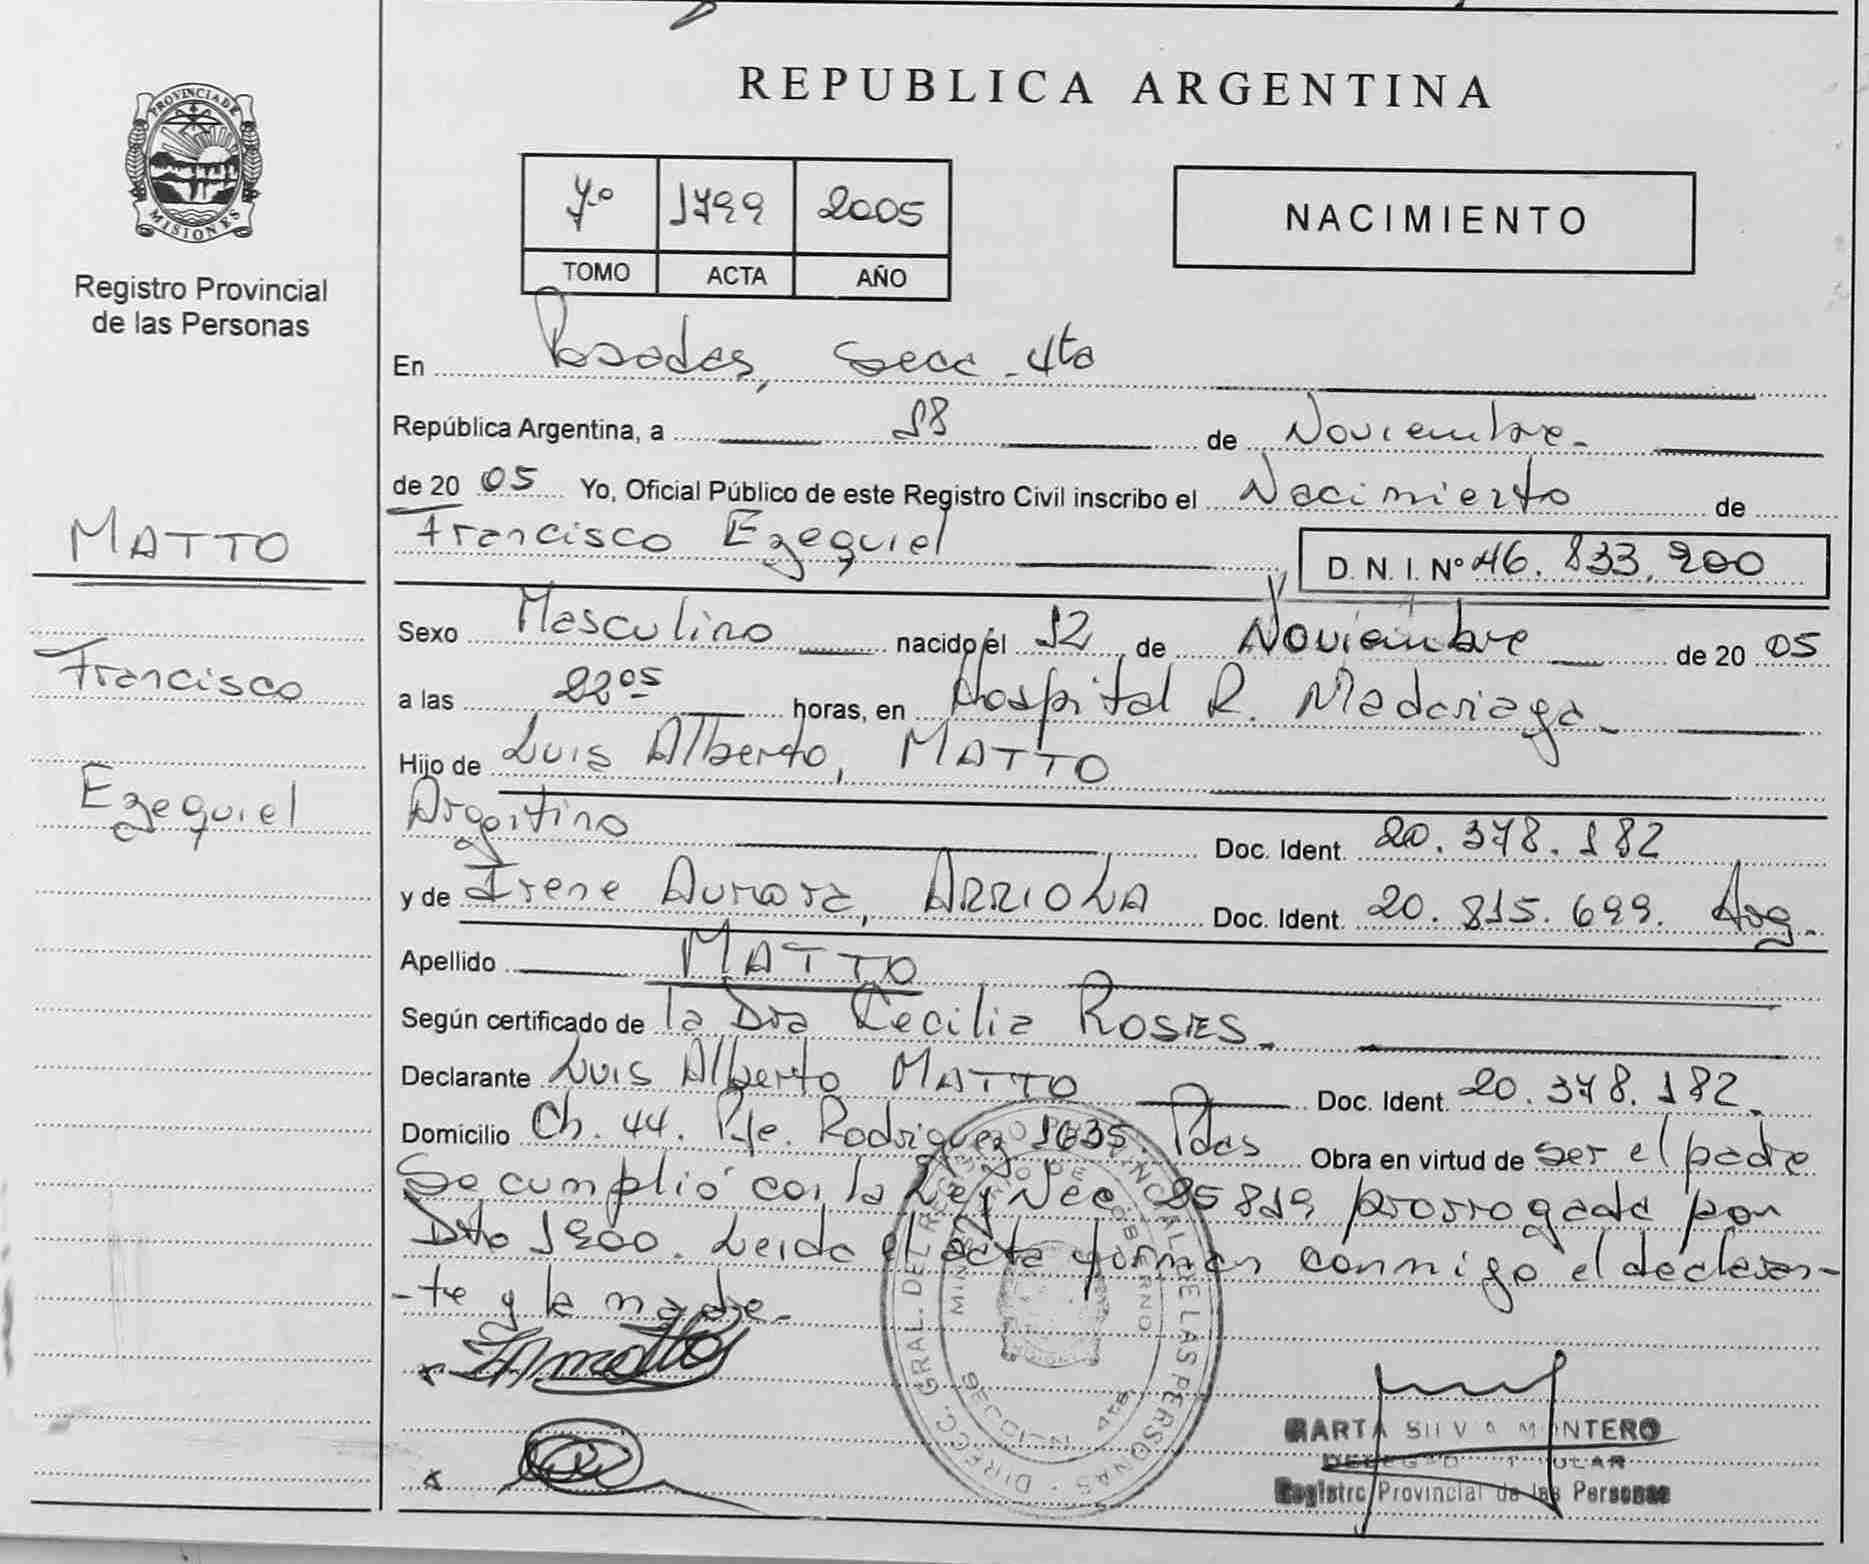 PROVINCIA DE
MISIONES
Registro Provincial
de las Personas
MATTO
Francisco
Ezequiel
REPUBLICA ARGENTINA
7º 1799 2005
TOMO ACTA AÑO
NACIMIENTO
En Posadas, Secc. 4ta
República Argentina, a 18 de Noviembre.
de 20 05 Yo, Oficial Público de este Registro Civil inscribo el Nacimiento de
Francisco Ezequiel D. N. I. Nº 46.833.200
Sexo Masculino nacido el 12 de Noviembre de 20 05
a las 22 05 horas, en Hospital R. Madariaga.
Hijo de Luis Alberto, MATTO
Argentino Doc. Ident. 20.378.182
y de Irene Aurora, ARRIOLA Doc. Ident. 20.815.699. Arg.
Apellido MATTO
Según certificado de la Dra Cecilia ROSIES.
Declarante Luis Alberto MATTO Doc. Ident. 20.378.182.
Domicilio Ch. 44. Pje. Rodriguez 1635 Pdas Obra en virtud de ser el padre
Se cumplió con la Ley Nac 25819 prorrogada por
Dto 1200. Leida el acta firman conmigo el declaran-
-te y la madre.
DIRECC. GRAL. DEL REGISTRO PROVINCIAL DE LAS PERSONAS
MINISTERIO DE GOBIERNO
SECCION 4ta
MARTA SILVIA MONTERO
DELEGADO TITULAR
Registro Provincial de las Personas